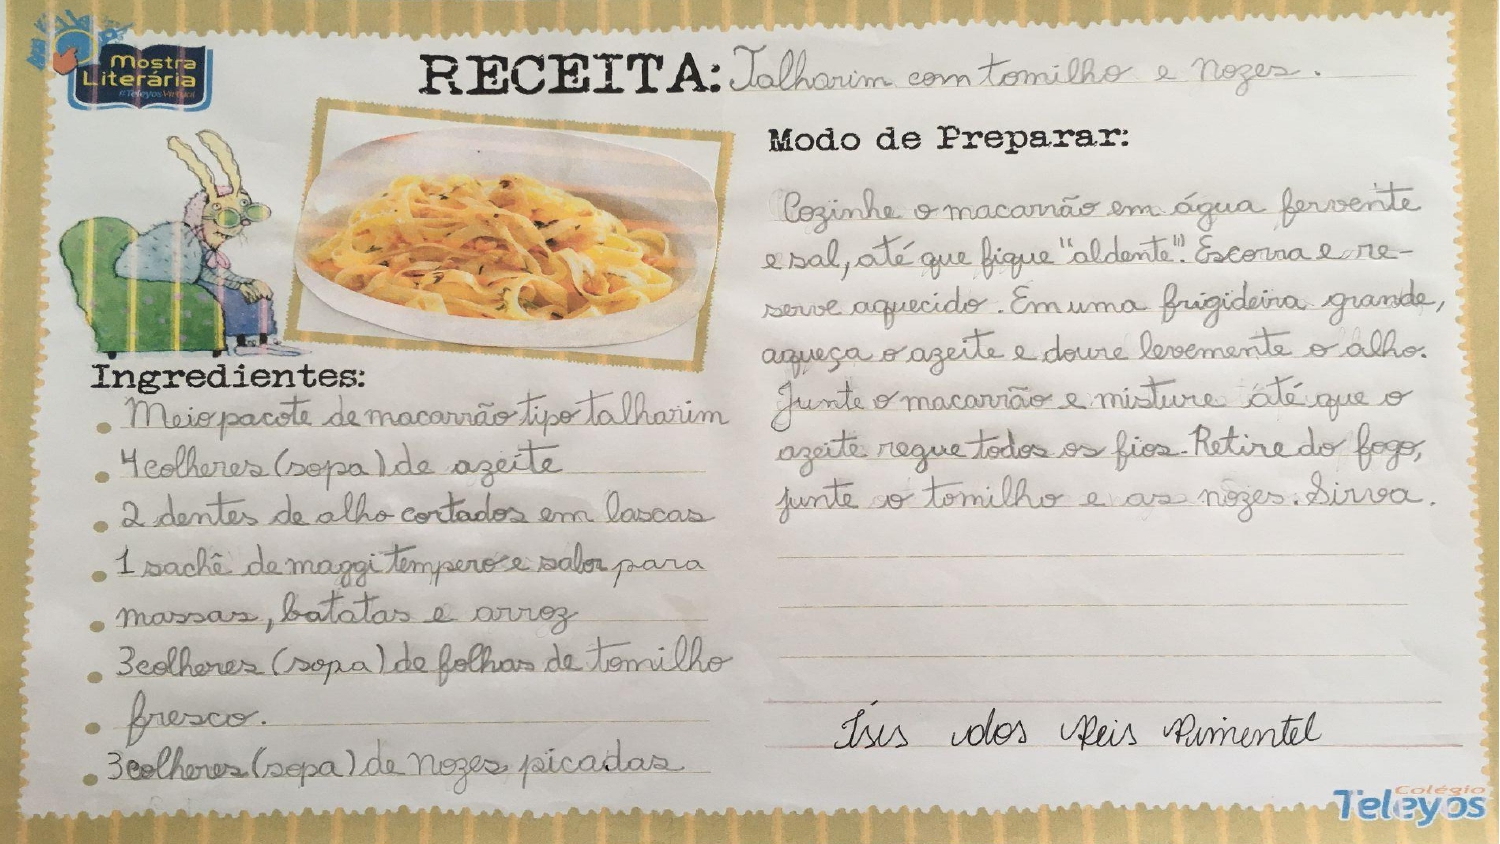 Mostra
Literária
#TeleyosVirtual
RECEITA: Talharim com tomilho e nozes.
Ingredientes:
Meio pacote de macarrão tipo talharim
4 colheres (sopa) de azeite
2 dentes de alho cortados em lascas
1 sachê de maggi tempero e sabor para
massas, batatas e arroz
3 colheres (sopa) de folhas de tomilho
fresco.
3 colheres (sopa) de nozes picadas
Modo de Preparar:
Cozinhe o macarrão em água fervente
e sal, até que fique "aldente". Escorra e re-
serve aquecido. Em uma frigideira grande,
aqueça o azeite e doure levemente o alho.
Junte o macarrão e misture até que o
azeite regue todos os fios. Retire do fogo,
junte o tomilho e as nozes. Sirva.
Ísis dos Reis Pimentel
Colégio
Teleyos